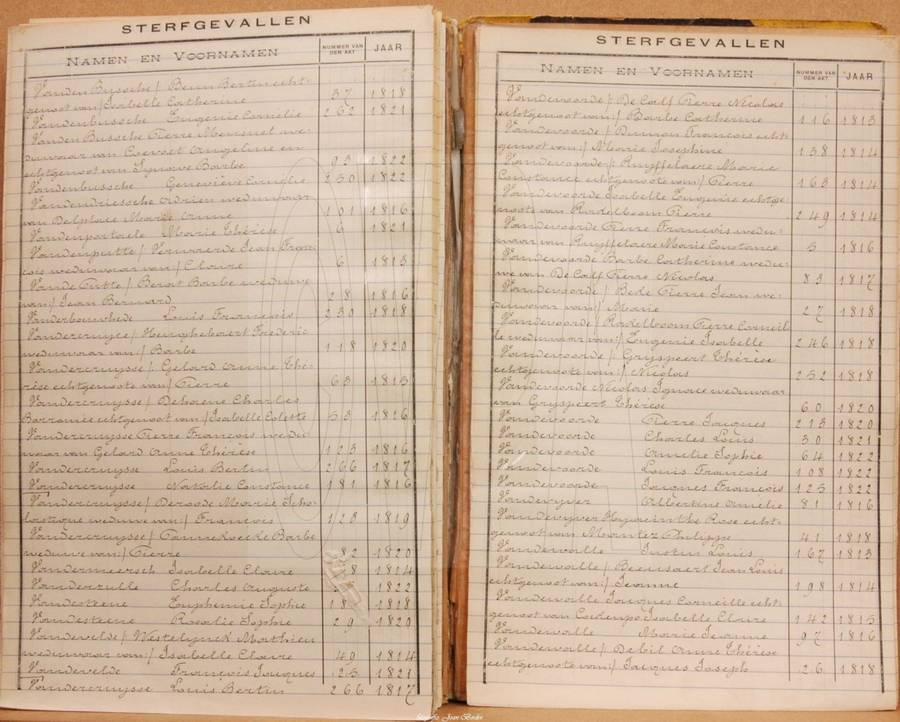 STERFGEVALLEN
NAMEN EN VOORNAMEN NUMMER VAN DEN AKT JAAR
Vanden Bussche / Beun Bertin echt-
genoot van / Isabelle Catherine 37 1818
Vandenbussche Eugenie Cornélie 262 1821
Vanden Bussche Pierre Meurinet wedu-
duwnaar van Coevoet Angeline en
echtgenoot van Ignave Barbe 93 1822
Vandenbussche Geneviève Cornélie 230 1822
Vandendriessche Adrien weduwnaar
van Delplace Marie Anne 101 1816
Vandenportaele Marie Thérèse 6 1821
Vandenputte / Verwaerde Jean Fran-
cois weduwnaar van / Claire 6 1813
Vande Putte / Benoit Barbe weduwe
van / Jean Bernard 28 1816
Vanderbouwhede Louis François 230 1818
Vandercruyce / Heughebaert Frederic
weduwnaar van / Barbe 118 1820
Vandercruysse / Gelard Anne Thé-
rèse echtgenoote van / Pierre 63 1813
Vandercruysse / Dehorne Charles
echtgenoot van / Isabelle Celeste 53 1816
Vandercruysse Pierre François wedu-
waar van Gelard Anne Thérèse 123 1816
Vandercruysse Louis Bertin 266 1817
Vandercruysse Natalie Constance 181 1816
Vandercruysse / Deroode Marie Scho-
lastique weduwe van / François 123 1819
Vandercruysse / Pannekoecke Barbe
weduwe van / Pierre 82 1820
Vandermeersch Isabelle Claire 8 1814
Vanderzulle Charles Auguste 1822
Vandesteene Euphemie Sophie 18 1818
Vandesteene Rosalie Sophie 29 1820
Vandevelde / Westelynck Mathieu
weduwnaar van / Isabelle Claire 40 1814
Vandevelde François Jacques 25 1821
Vandercruysse Louis Bertin 266 1817
STERFGEVALLEN
NAMEN EN VOORNAMEN NUMMER VAN DEN AKT JAAR
Vandevoorde / De Calf Pierre Nicolas
echtgenoot van / Barbe Catherine 116 1813
Vandevoorde / Dumon François echt-
genoot van / Marie Josephine 138 1814
Vandevoorde / Ruyffelaere Marie
Constance echtgenoote van / Pierre 163 1814
Vandevoorde Isabelle Eugenie echtge-
noote van Radelboom Pierre 249 1814
Vandevoorde Pierre François wedu-
waar van Ruyffelaere Marie Constance 5 1816
Vandevoorde Barbe Catherine wedu-
we van De Calf Pierre Nicolas 83 1817
Vandevoorde / Beke Pierre Jean we-
duwnaar van / Marie 27 1818
Vandevoorde / Radelboom Pierre Corneil-
le weduwnaar van / Eugenie Isabelle 246 1818
Vandevoorde / Gryspeert Thérèse
echtgenoote van / Nicolas 252 1818
Vandevoorde Nicolas Ignace weduwnaar
van Gryspeert Thérèse 60 1820
Vandevoorde Pierre Jacques 213 1820
Vandevoorde Charles Louis 30 1821
Vandevoorde Amelie Sophie 64 1822
Vandevoorde Louis François 108 1822
Vandevoorde Jacques François 125 1822
Vandevyver Albertine Amelie 81 1816
Vandevyver Hyacinthe Rose echt-
genoot van Mountez Philippe 41 1818
Vandewalle Justin Louis 167 1813
Vandewalle / Beeusaert Jean Louis
echtgenoot van / Jeanne 198 1814
Vandewalle Jacques Corneille echt-
genoot van Isabelle Claire 142 1815
Vandewalle Marie Jeanne 97 1816
Vandewalle / Debil Anne Thérèse
echtgenoote van / Jacques Joseph 26 1818